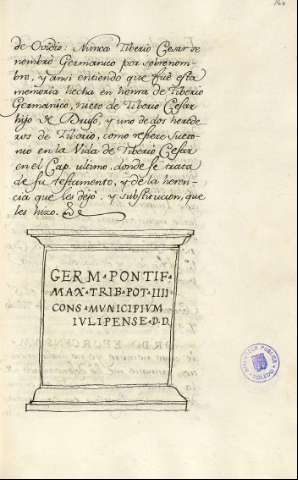 de Ovidio: Nunca Tiberio Cesar se
nombró Germanico por sobrenom-
bre, y ansi entiendo que fué esta
memoria hecha en honra de Tiberio
Germanico, nieto de Tiberio Cesar
hijo de Druso, y uno de dos herede
ros de Tiberio, como refiere Sueto-
nio en la Vida de Tiberio Cesar
en el Cap. ultimo. donde se trata
de su testamento, y de la heren-
cia que les dejó, y substitucion, que
les hizo.
GERM·PONTIF·
MAX·TRIB·POT·IIII
CONS·MVNICIPIVM
IVLIPENSE·D·D